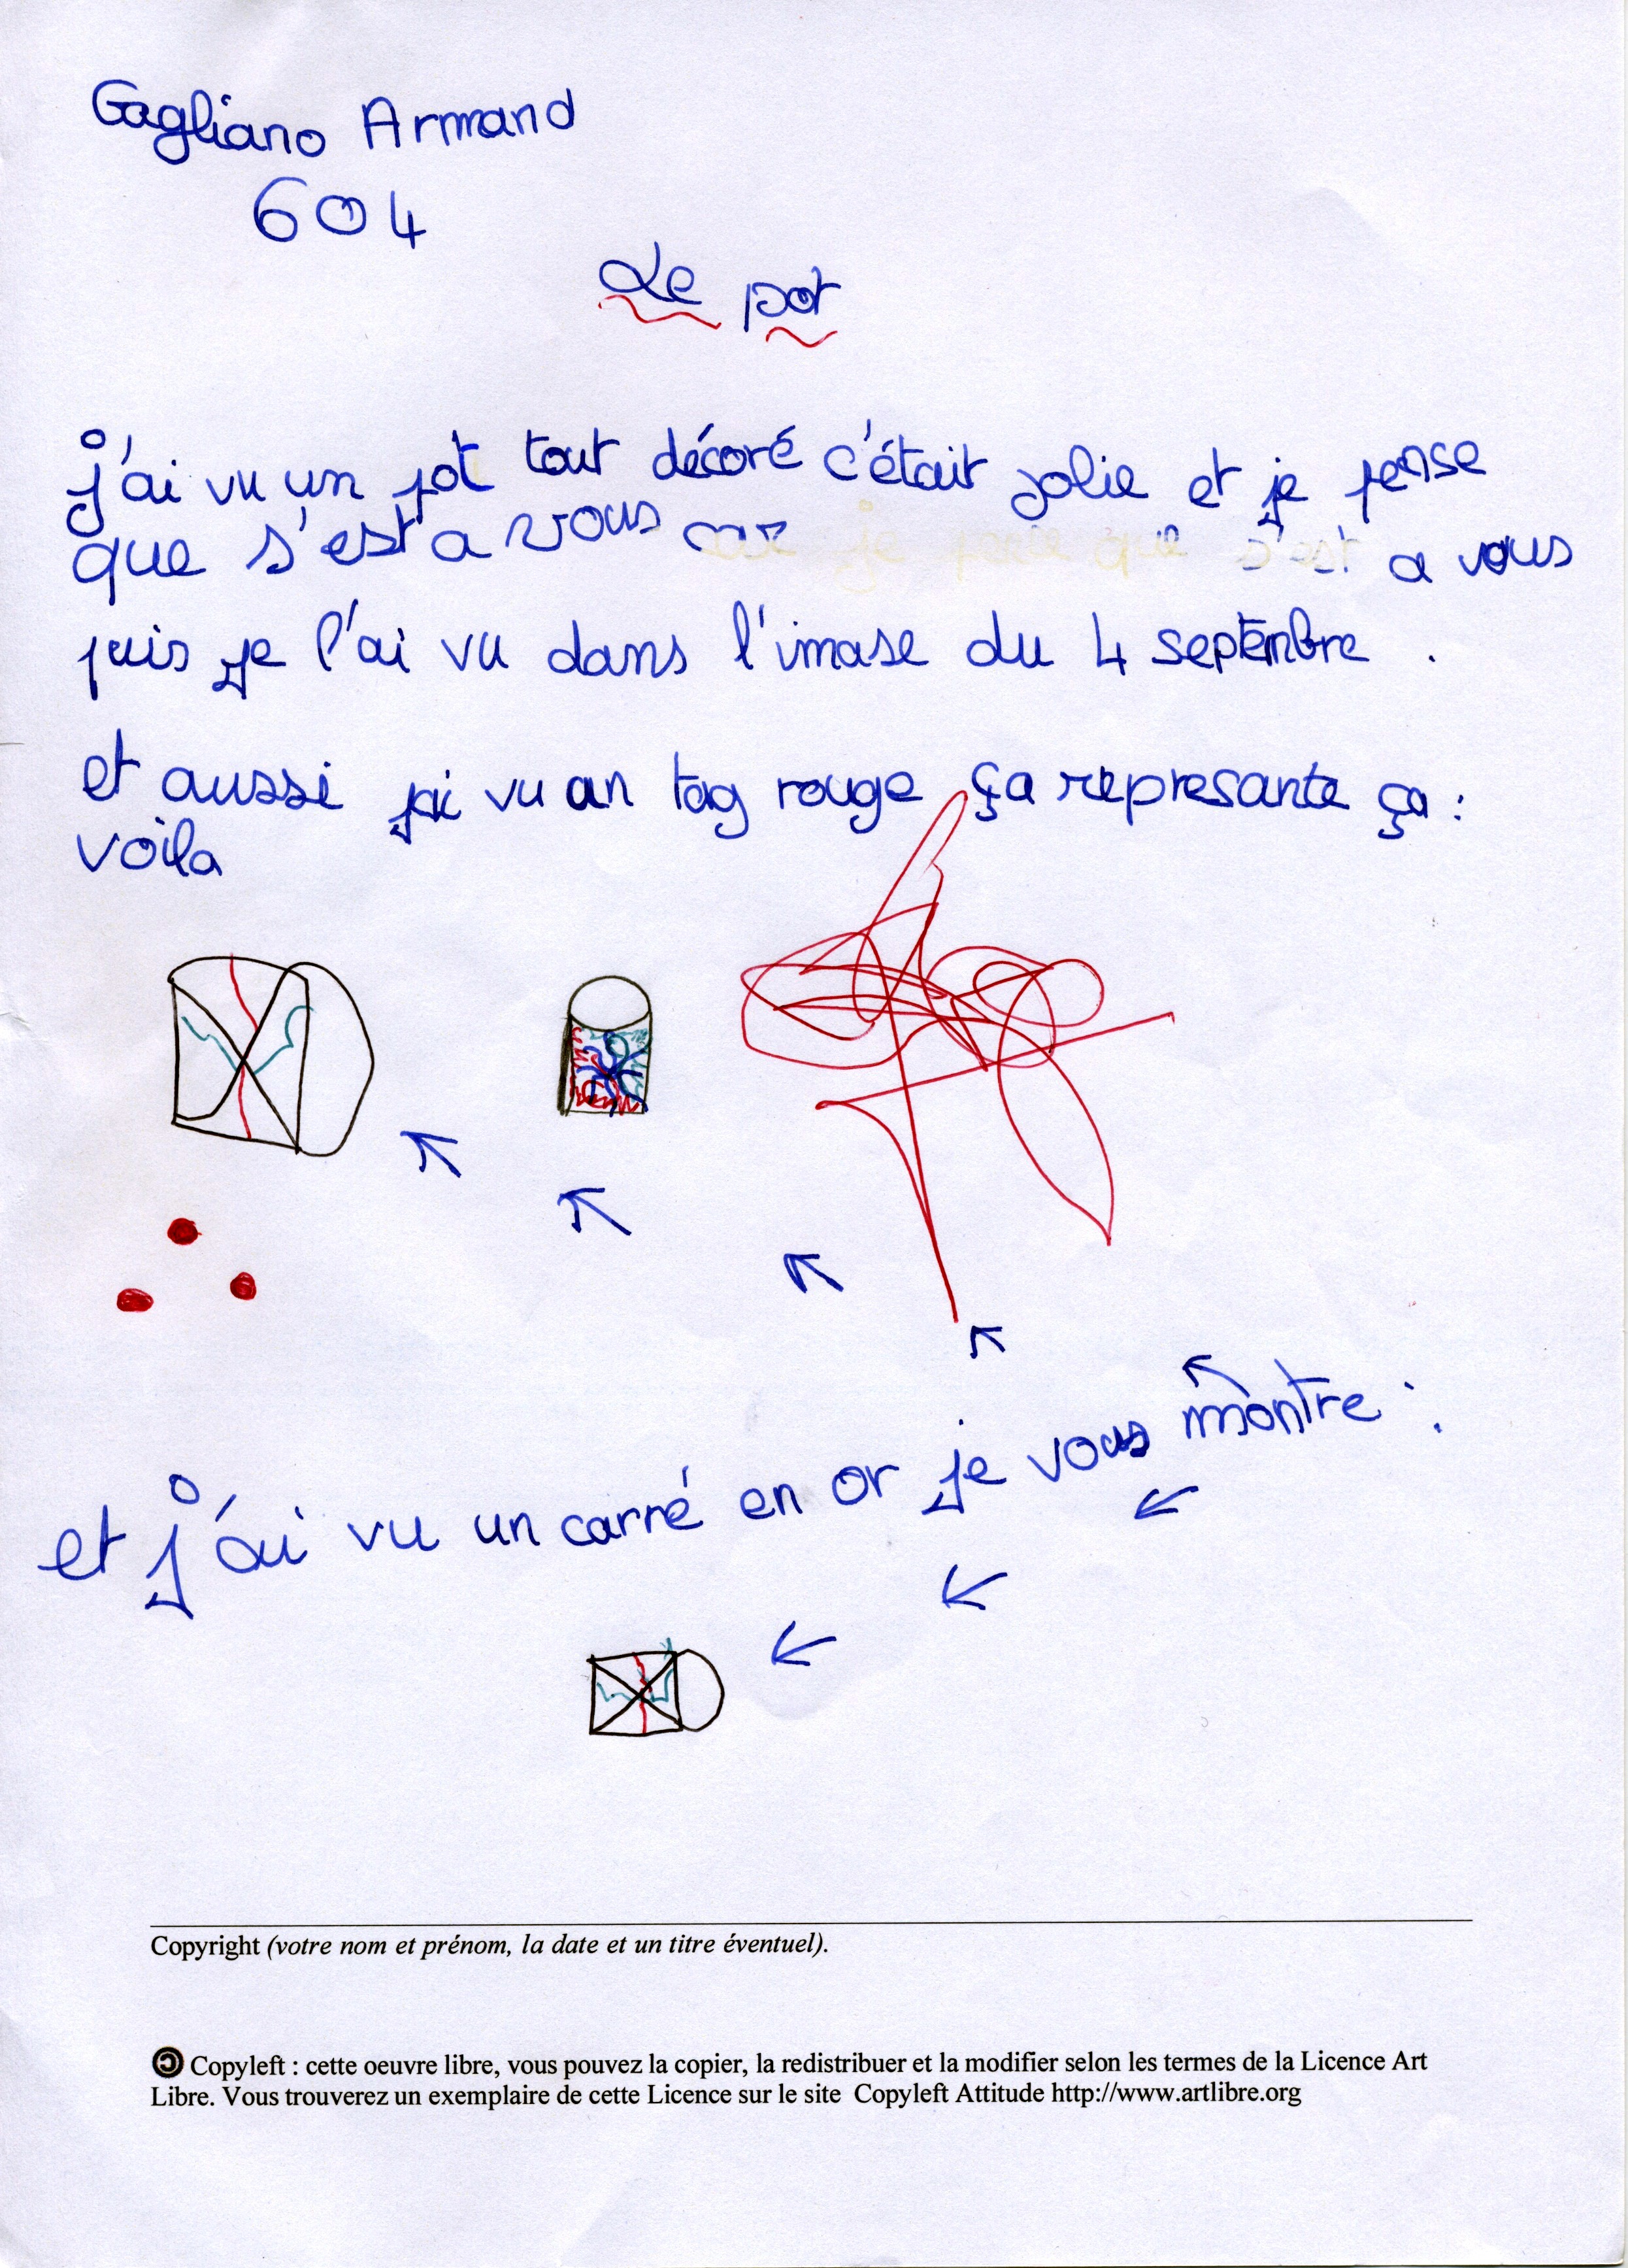 Gagliano Armand
604
Le pot
j'ai vu un pot tout décoré c'était jolie et je pense
que s'est a vous car je pense que s'est a vous
puis je l'ai vu dans l'imase du 4 septembre .
et aussi j'ai vu un tag rouge ça represante ça :
voila
et j'ai vu un carré en or je vous montre :
Copyright (votre nom et prénom, la date et un titre éventuel).
Copyleft : cette oeuvre libre, vous pouvez la copier, la redistribuer et la modifier selon les termes de la Licence Art
Libre. Vous trouverez un exemplaire de cette Licence sur le site Copyleft Attitude http://www.artlibre.org